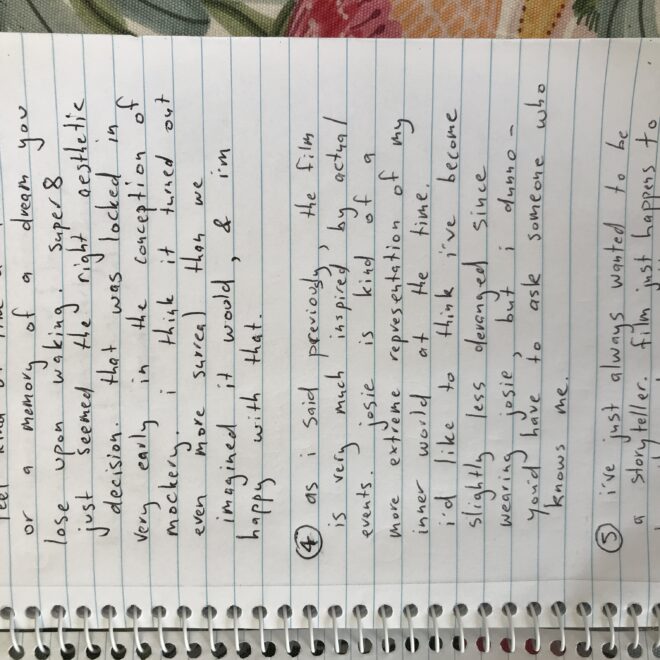 or a memory of a dream you
lose upon waking. super 8
just seemed the right aesthetic
decision. that was locked in
very early in the conception of
mockery. i think it turned out
even more surreal than we
imagined it would, & i'm
happy with that.
④ as i said previously, the film
is very much inspired by actual
events. josie is kind of a
more extreme representation of my
inner world at the time.
i'd like to think i've become
slightly less deranged since
wearing josie, but i dunno -
you'd have to ask someone who
knows me.
⑤ i've just always wanted to be
a storyteller. film just happens to